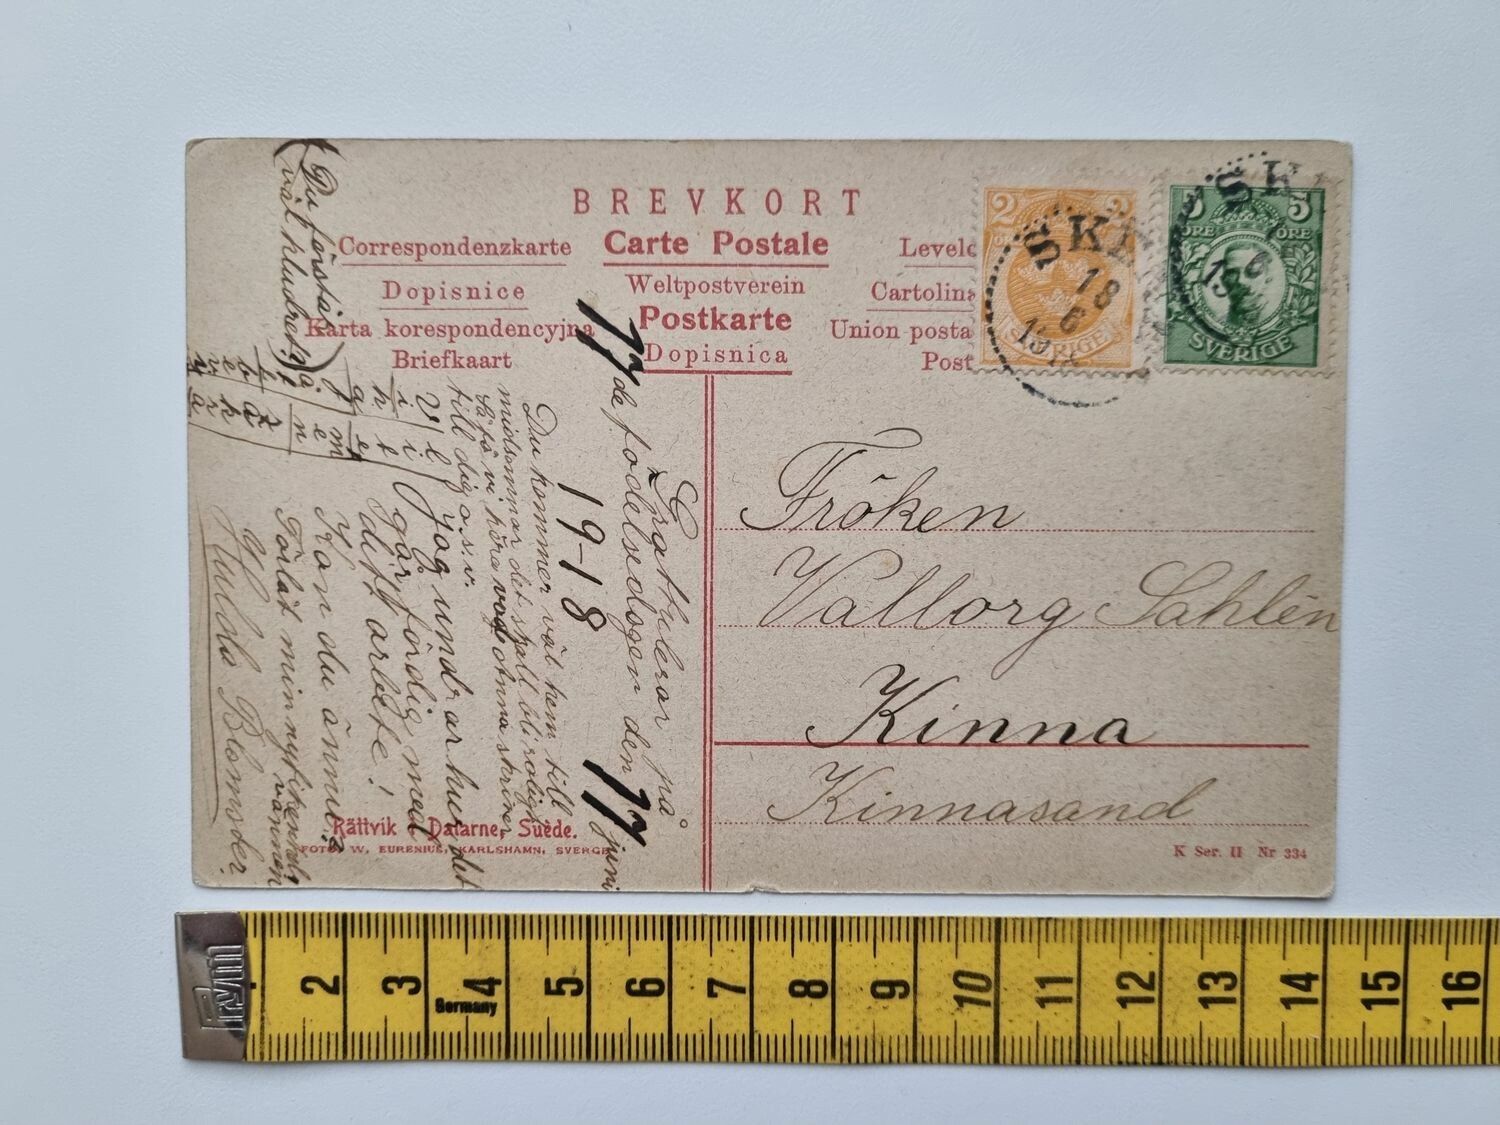 BREVKORT
Correspondenzkarte
Carte Postale
Dopisnice
Weltpostverein
Cartolin
Karta korespondencyjna
Postkarte
Union posta
Briefkaart
Dopisnica
Post
2
2
SVERIGE
5
5
ÖRE
ÖRE
SVERIGE
18
6
Gratulerar på
17de födelsedagen den 17 juni
19-18
Du kommer väl hem till
midsommar det skall bli roligt
så få vi höra
till dig o.s.v.
Jag undrar hur det
går färdig med
ditt arbete!
Kan du ännu?
Förlåt min nyfikenhet,
vännen
Hulda Blomster.
(Du förstår
väl kludret?)
Fröken
Vallorg Sahlén
Kinna
Kinnasand
Rättvik i Dalarne, Suède.
FOTO W. EURENIUS, KARLSHAMN, SVERGE
K Ser. II Nr 334
Prym
2 3 4 5 6 7 8 9 10 11 12 13 14 15 16
Germany